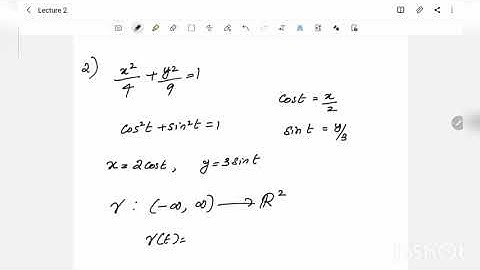 Lecture 2
2) x²/4 + y²/9 = 1
cost = x/2
cos²t + sin²t = 1
sint = y/3
x = 2cost, y = 3sint
γ : (-∞, ∞) → ℝ²
γ(t) =